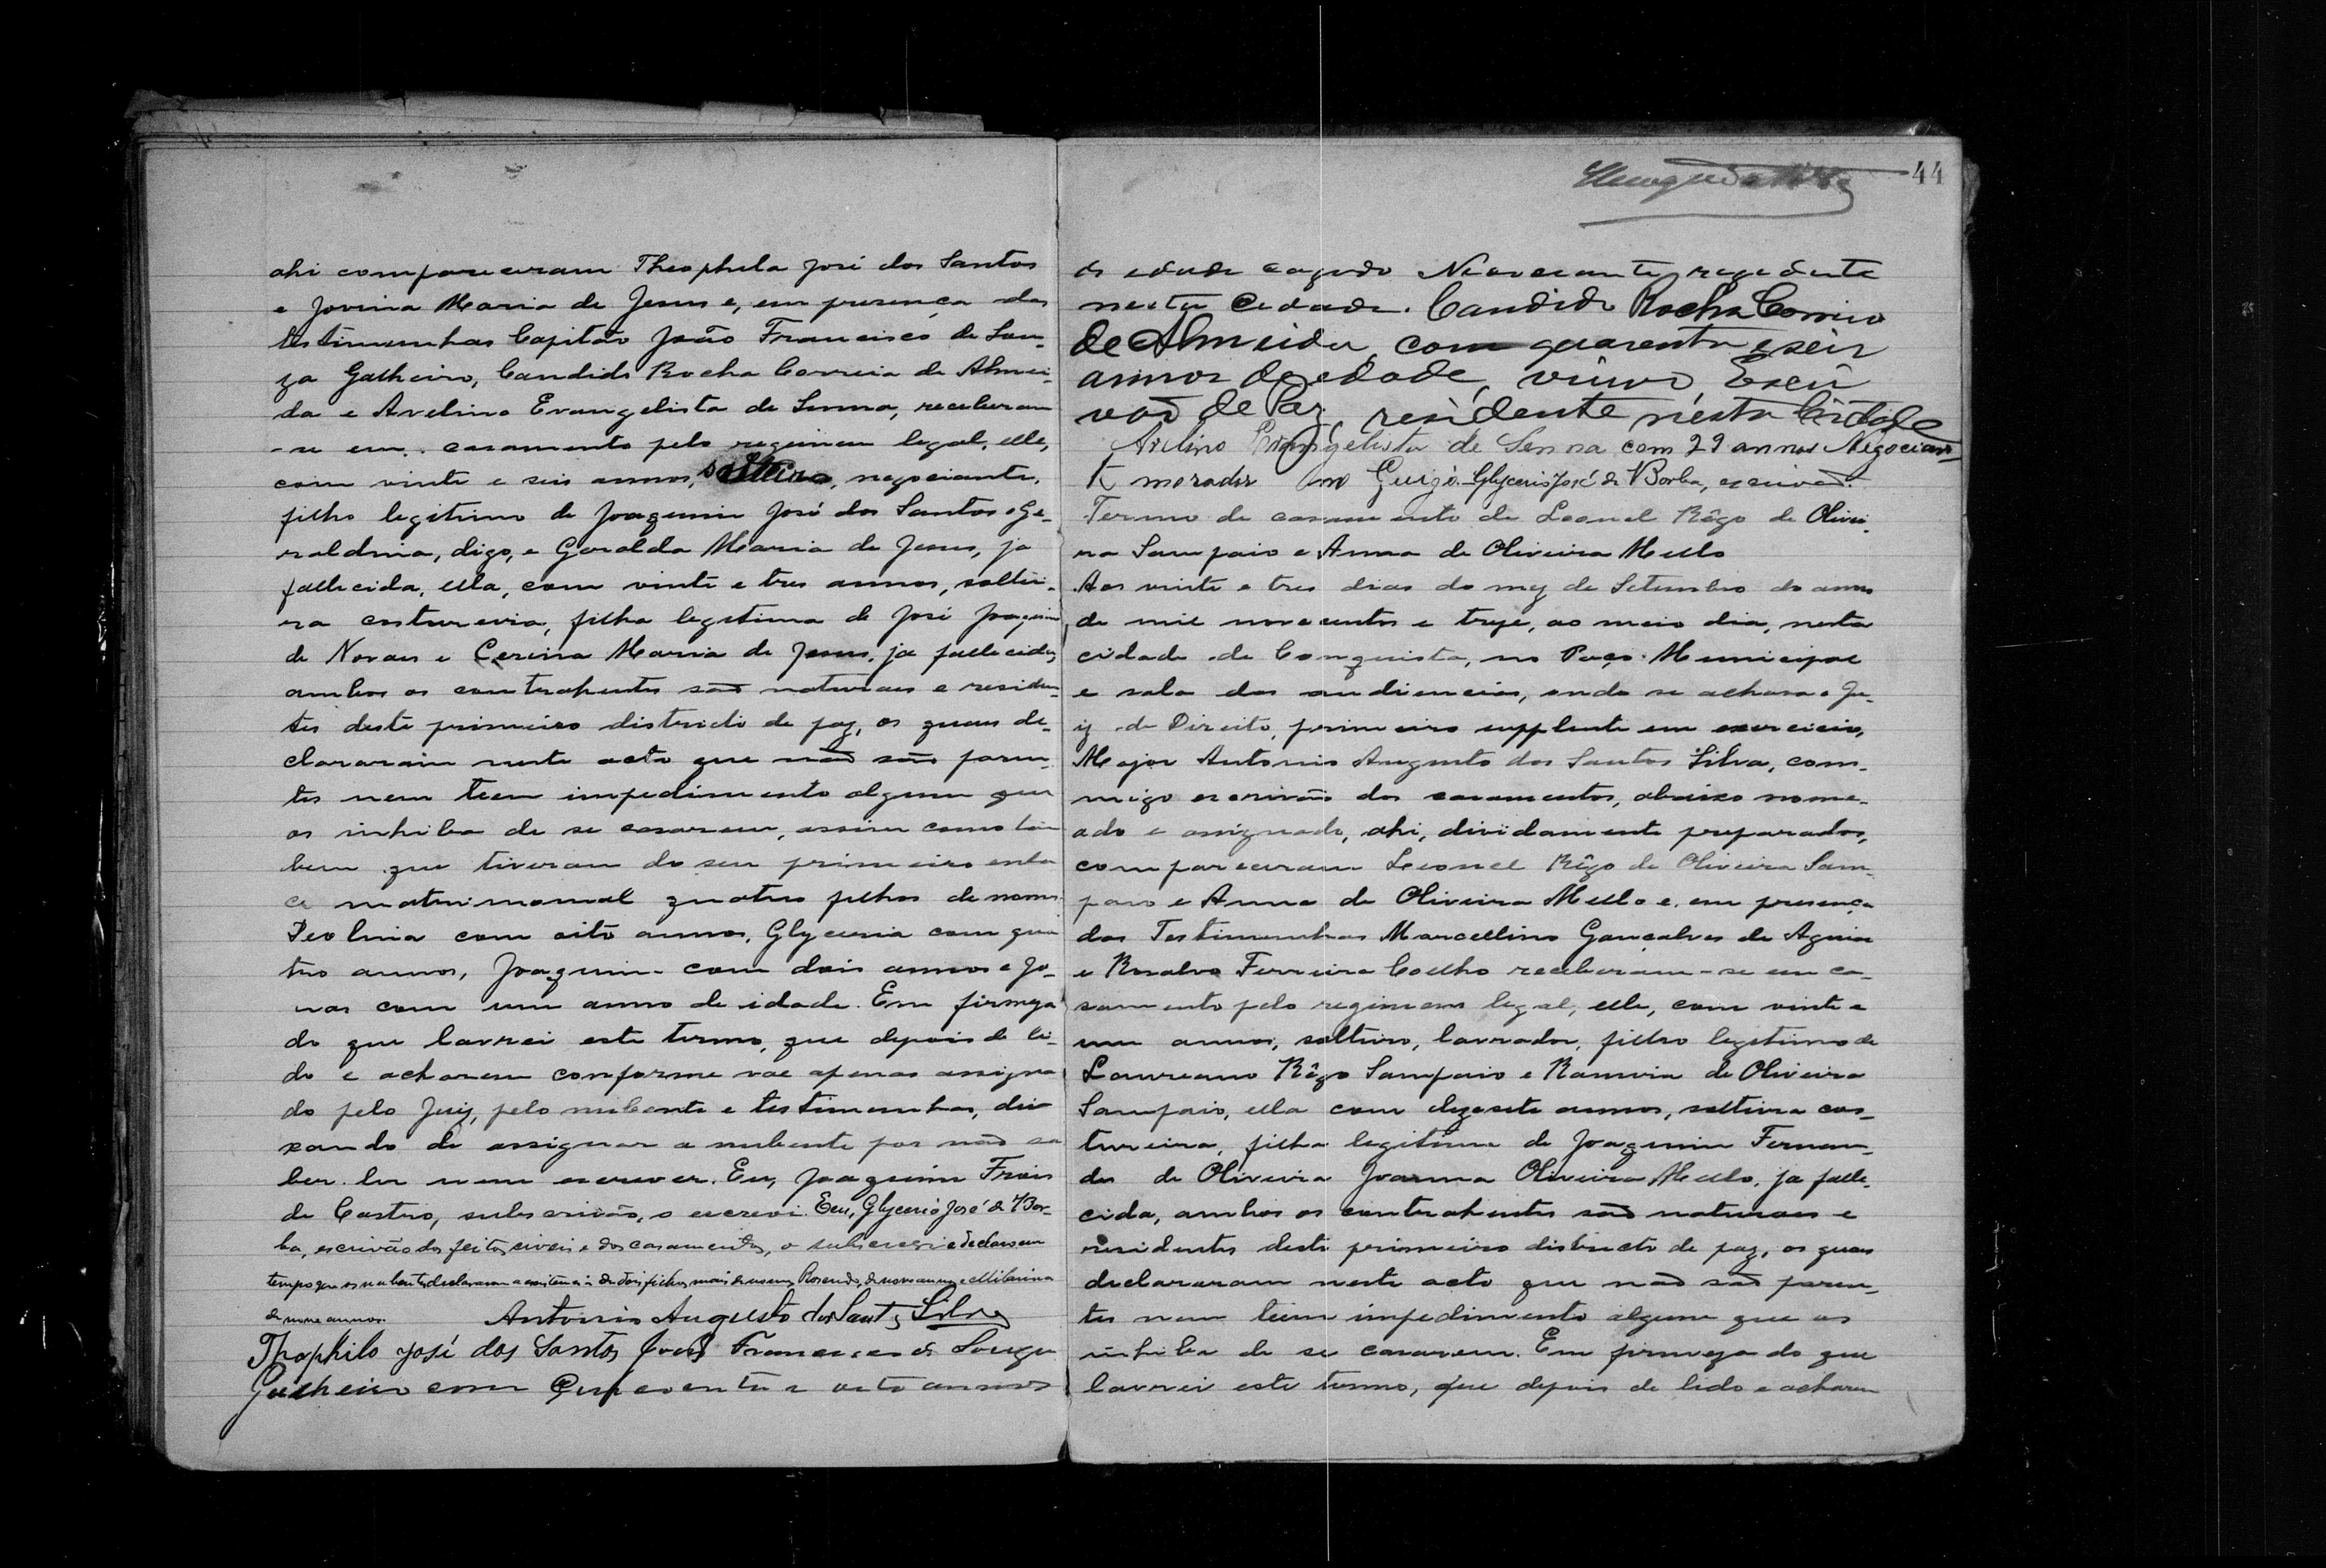 ahi compareceram Theophilo José dos Santos
e Jovina Maria de Jesus e, em presença das
testimunhas Capitão João Francisco de Sou-
za Gatheiro, Candido Rocha Correia de Almei-
da e Avelino Evangelista de Senna, receberam
-se em casamento pelo regimen legal, elle,
com vinte e seis annos, solteiro, negociante,
filho legitimo de Joaquim José dos Santos e Ge-
raldina, digo, e Geralda Maria de Jesus, ja
fallecida, ella, com vinte e tres annos, soltei-
ra costureira, filha legitima de José Joaquim
de Novaes e Cerina Maria de Jesus, ja fallecidos,
ambos os contrahentes são naturaes e residen-
tes deste primeiro districto de paz, os quaes de-
clararam neste acto que não são paren-
tes nem teem impedimento algum que
os inhiba de se casarem, assim como tam
bem que tiveram do seu primeiro enla
ce matrimonial quatro filhos de nomes
com oito annos, Glyceria com qua
tro annos, Joaquim com dois annos e Jo-
nas com um anno de idade. Em firmeza
do que lavrei este termo, que depois de li-
do e acharem conforme vae apenas assigna
do pelo Juiz, pelo nubente e testimunhas, dei
xando de assignar a nubente por não sa
ber ler nem escrever. Eu, Joaquim Frois
de Castro, subescrivão, o escrevi. Eu, Glycerio José de Bor-
ba, escrivão dos feitos civeis e dos casamentos, o subscrevi e declaro em
tempo que os nubentes declararam a existencia de dois filhos mais de nomes Rosendo, de nove annos e
de nove annos. Antonio Augusto dos Santos Silva
Theophilo José dos Santos João Francisco de Souza
Gatheiro com Cincoenta e oito annos
44
de edade cazado Negociante rezedente
nesta Cedade. Candido Rocha Correia
de Almeida, com quarenta e seis
annos de edade, viuvo, Escri
vão de Paz, residente n'esta Cidade
Avelino Evangelista de Senna com 29 annos Negocian-
te morador no Guigó. Glycerio José de Borba, escrivão.
Termo de casamento de Leonel Rêgo de Olivei-
ra Sampaio e Anna de Oliveira Mello
Aos vinte e tres dias do mez de Setembro do anno
de mil novecentos e treze, ao meio dia, nesta
cidade de Conquista, no Paço Municipal
e sala das audiencias, onde se achava o Ju-
iz de Direito, primeiro supplente em exercicio,
Major Antonio Augusto dos Santos Silva, com-
migo escrivão dos casamentos, abaixo nome-
ado e assignado, ahi, dividamente preparados,
compareceram Leonel Rêgo de Oliveira Sam-
paio e Anna de Oliveira Mello e, em presença
das Testimunhas Marcellino Gonçalves de Aguiar
e Rosalvo Ferreira Coelho receberam-se em ca-
samento pelo regimem legal, elle, com vinte e
um annos, solteiro, lavrador, filho legitimo de
Laureano Rêgo Sampaio e Ramira de Oliveira
Sampaio, ella com dezesete annos, solteira cos-
tureira, filha legitima de Joaquim Fernan-
des de Oliveira Joanna Oliveira Mello, ja falle-
cida, ambos os contrahentes são naturaes e
residentes deste primeiro districto de paz, os quaes
declararam neste acto que não são paren-
tes nem teem impedimento algum que os
inhiba de se casarem. Em firmeza do que
lavrei este termo, que depois de lido e acharem